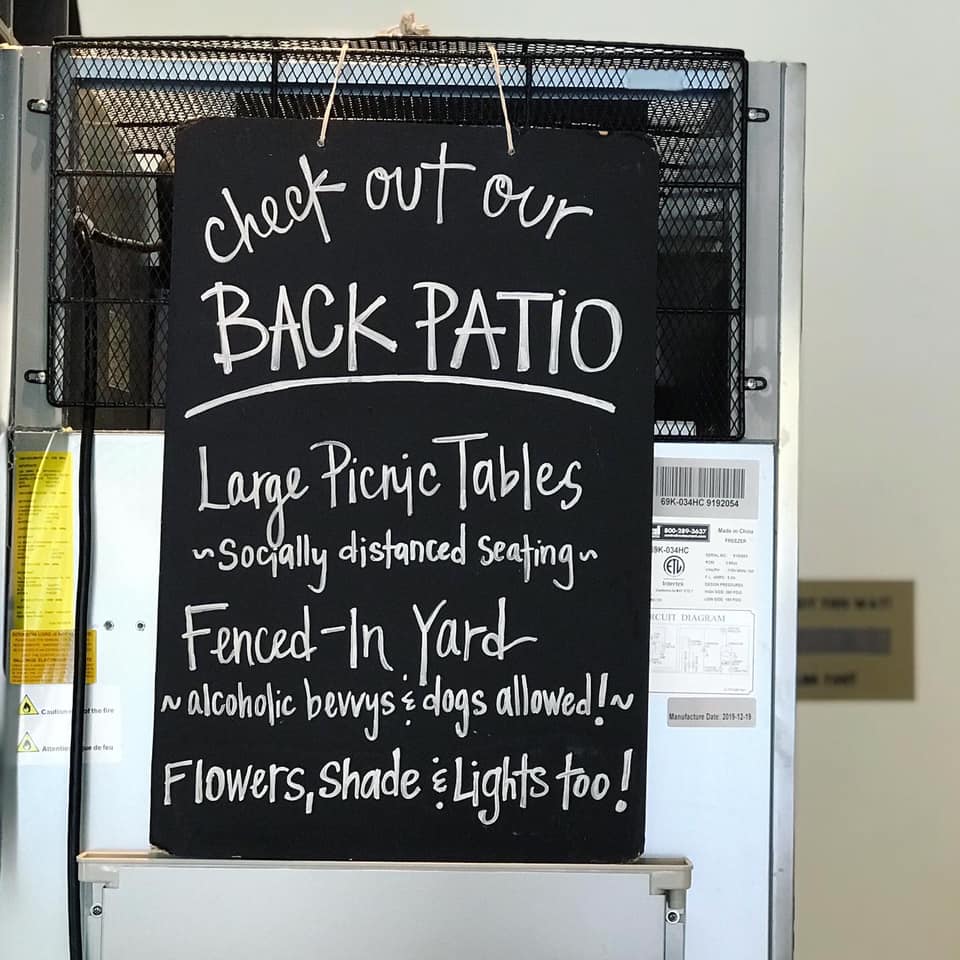 check out our
BACK PATIO
Large Picnic Tables
~Socially distanced seating~
Fenced-In Yard
~alcoholic bevvys & dogs allowed!~
Flowers, Shade & Lights too!
69K-034HC 9192054
800-289-3637
Made in China
FREEZER
9K-034HC
Intertek
CUIT DIAGRAM
Manufacture Date: 2019-12-19
Caution
of the fire
ue de feu